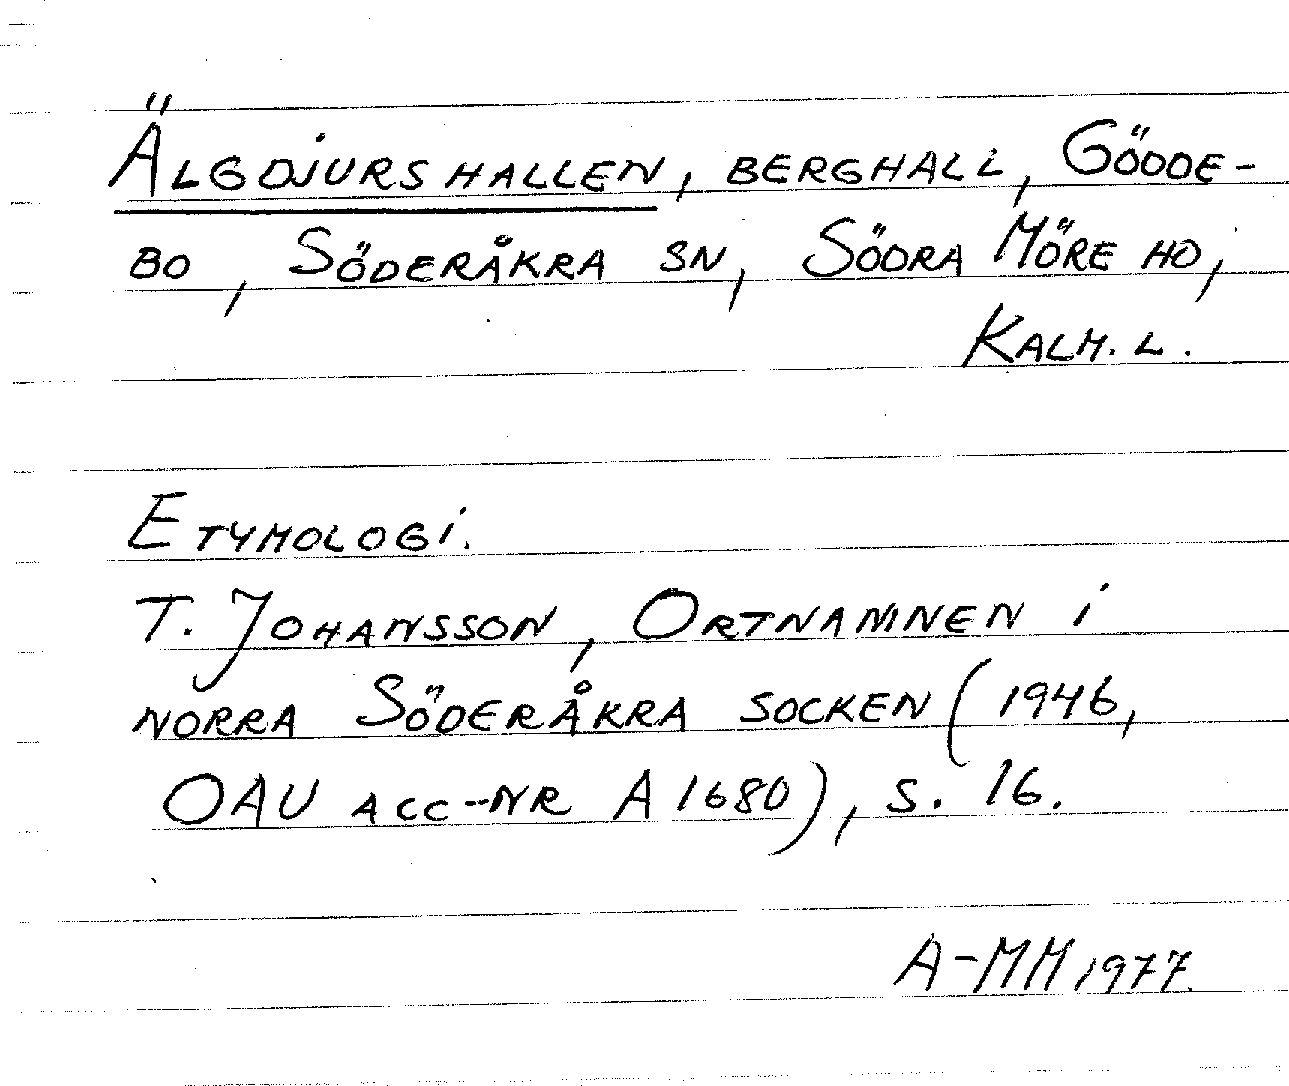 Älgdjurshallen, berghall, Gödde-
bo, Söderåkra sn, Södra Möre hd,
Kalm. l.
Etymologi.
T. Johansson, Ortnamnen i
norra Söderåkra socken (1946,
OAU acc-nr A 1680), s. 16.
A-MM 1977.